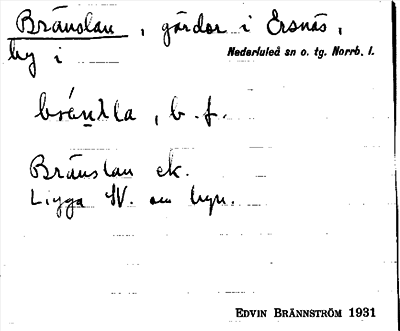 Bränslan, gårdar i Ersnäs,
by i Nederluleå sn o. tg. Norrb. l.
, b. f.
Bränslan ek.
Ligga SV. om byn.
EDVIN BRÄNNSTRÖM 1931